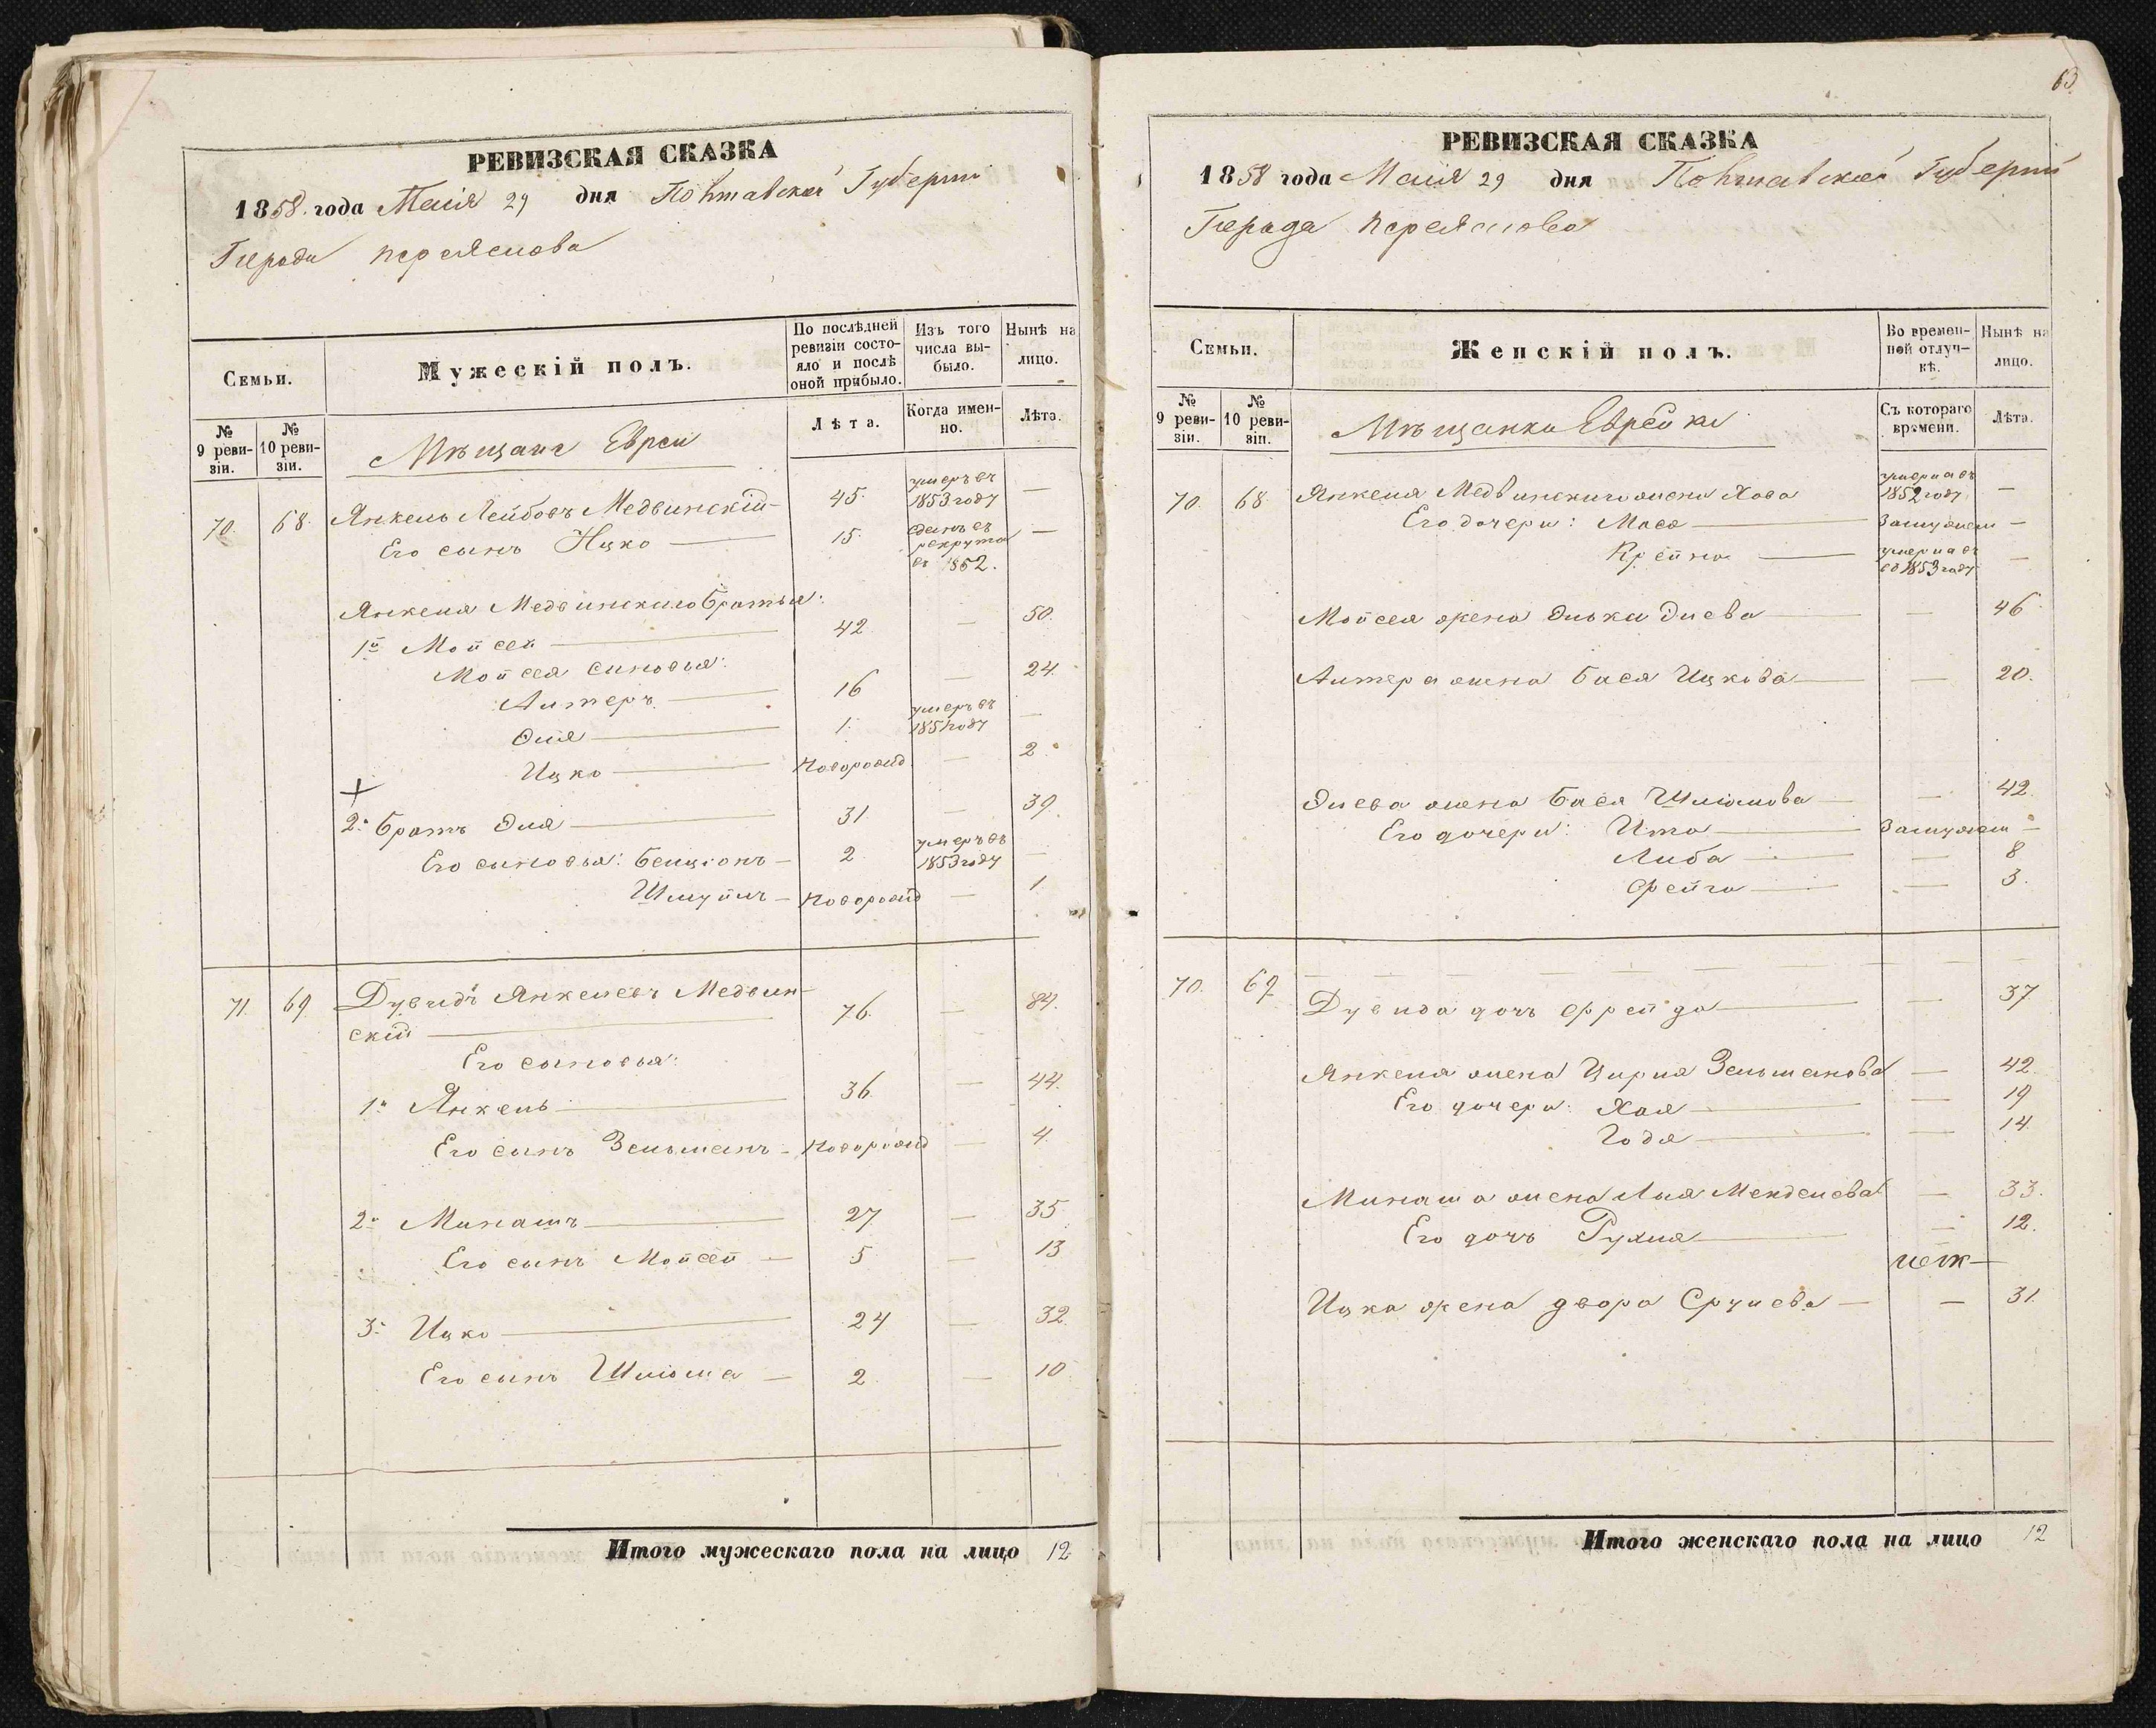 РЕВИЗСКАЯ СКАЗКА
1858 года Маія 29 дня Полтавской Губерніи
Города Переяслова
Семьи.
Мужескій полъ.
По послѣдней ревизіи состояло и послѣ оной прибыло.
Изъ того числа выбыло.
Нынѣ на лицо.
№ 9 ревизіи.
№ 10 ревизіи.
Мѣщане Евреи
Лѣта.
Когда именно.
Лѣта.
70. 68. Янкель Лейбовъ Медвинскій — 45. умеръ въ 1853 году —
Его сынъ Ицко — 15. сданъ въ рекрута въ 1852. —
Янкеля Медвинскаго братья:
1й Мойсей — 42 — 50.
Мойсея сыновья:
Литеръ — 16 — 24.
Эля — 1. умеръ въ 1851 году —
Ицко — Новорожд — 2
2й братъ Эля — 31 — 39.
Его сыновья: Бенціонъ — 2 умеръ въ 1853 году —
Шмуйль — Новорожд — 1
71. 69 Дувидъ Янкелевъ Медвин-
скій — 76. — 84.
Его сыновья:
1й Янкель — 36. — 44.
Его сынъ Зельманъ — Новорожд — 4.
2й Минашъ — 27 — 35
Его сынъ Мойсей — 5 — 13
3й Ицко — 24 — 32.
Его сынъ Шліома — 2 — 10
Итого мужескаго пола на лицо 12
63.
РЕВИЗСКАЯ СКАЗКА
1858 года Маія 29 дня Полтавской Губерніи
Города Переяслова
Семьи.
Женскій полъ.
Во временной отлучкѣ.
Нынѣ на лицо.
№ 9 ревизіи.
№ 10 ревизіи.
Мѣщанки Еврейки
Съ котораго времени.
Лѣта.
70. 68. Янкеля Медвинскаго жена Хава умерла въ 1852 году —
Его дочери: Мася — Замужем —
Крейна — умерла въ 1853 году —
Мойсея жена Элька Элева — 46
Литера жена Бася Ицкова — 20.
Элева жена Бася Шліомова — 42.
Его дочери: Ита — Замужем —
Либа — 8
Фейга — 3.
70. 69 Дувида дочь Фрейда — 37
Янкеля жена Цирля Зельманова — 42.
Его дочери: Хая — 19
Годя — 14.
Минаша жена Лия Менделева — 33.
Его дочь Рухля — 12.
Ицка жена Двора Срулева — 31.
Итого женскаго пола на лицо 12